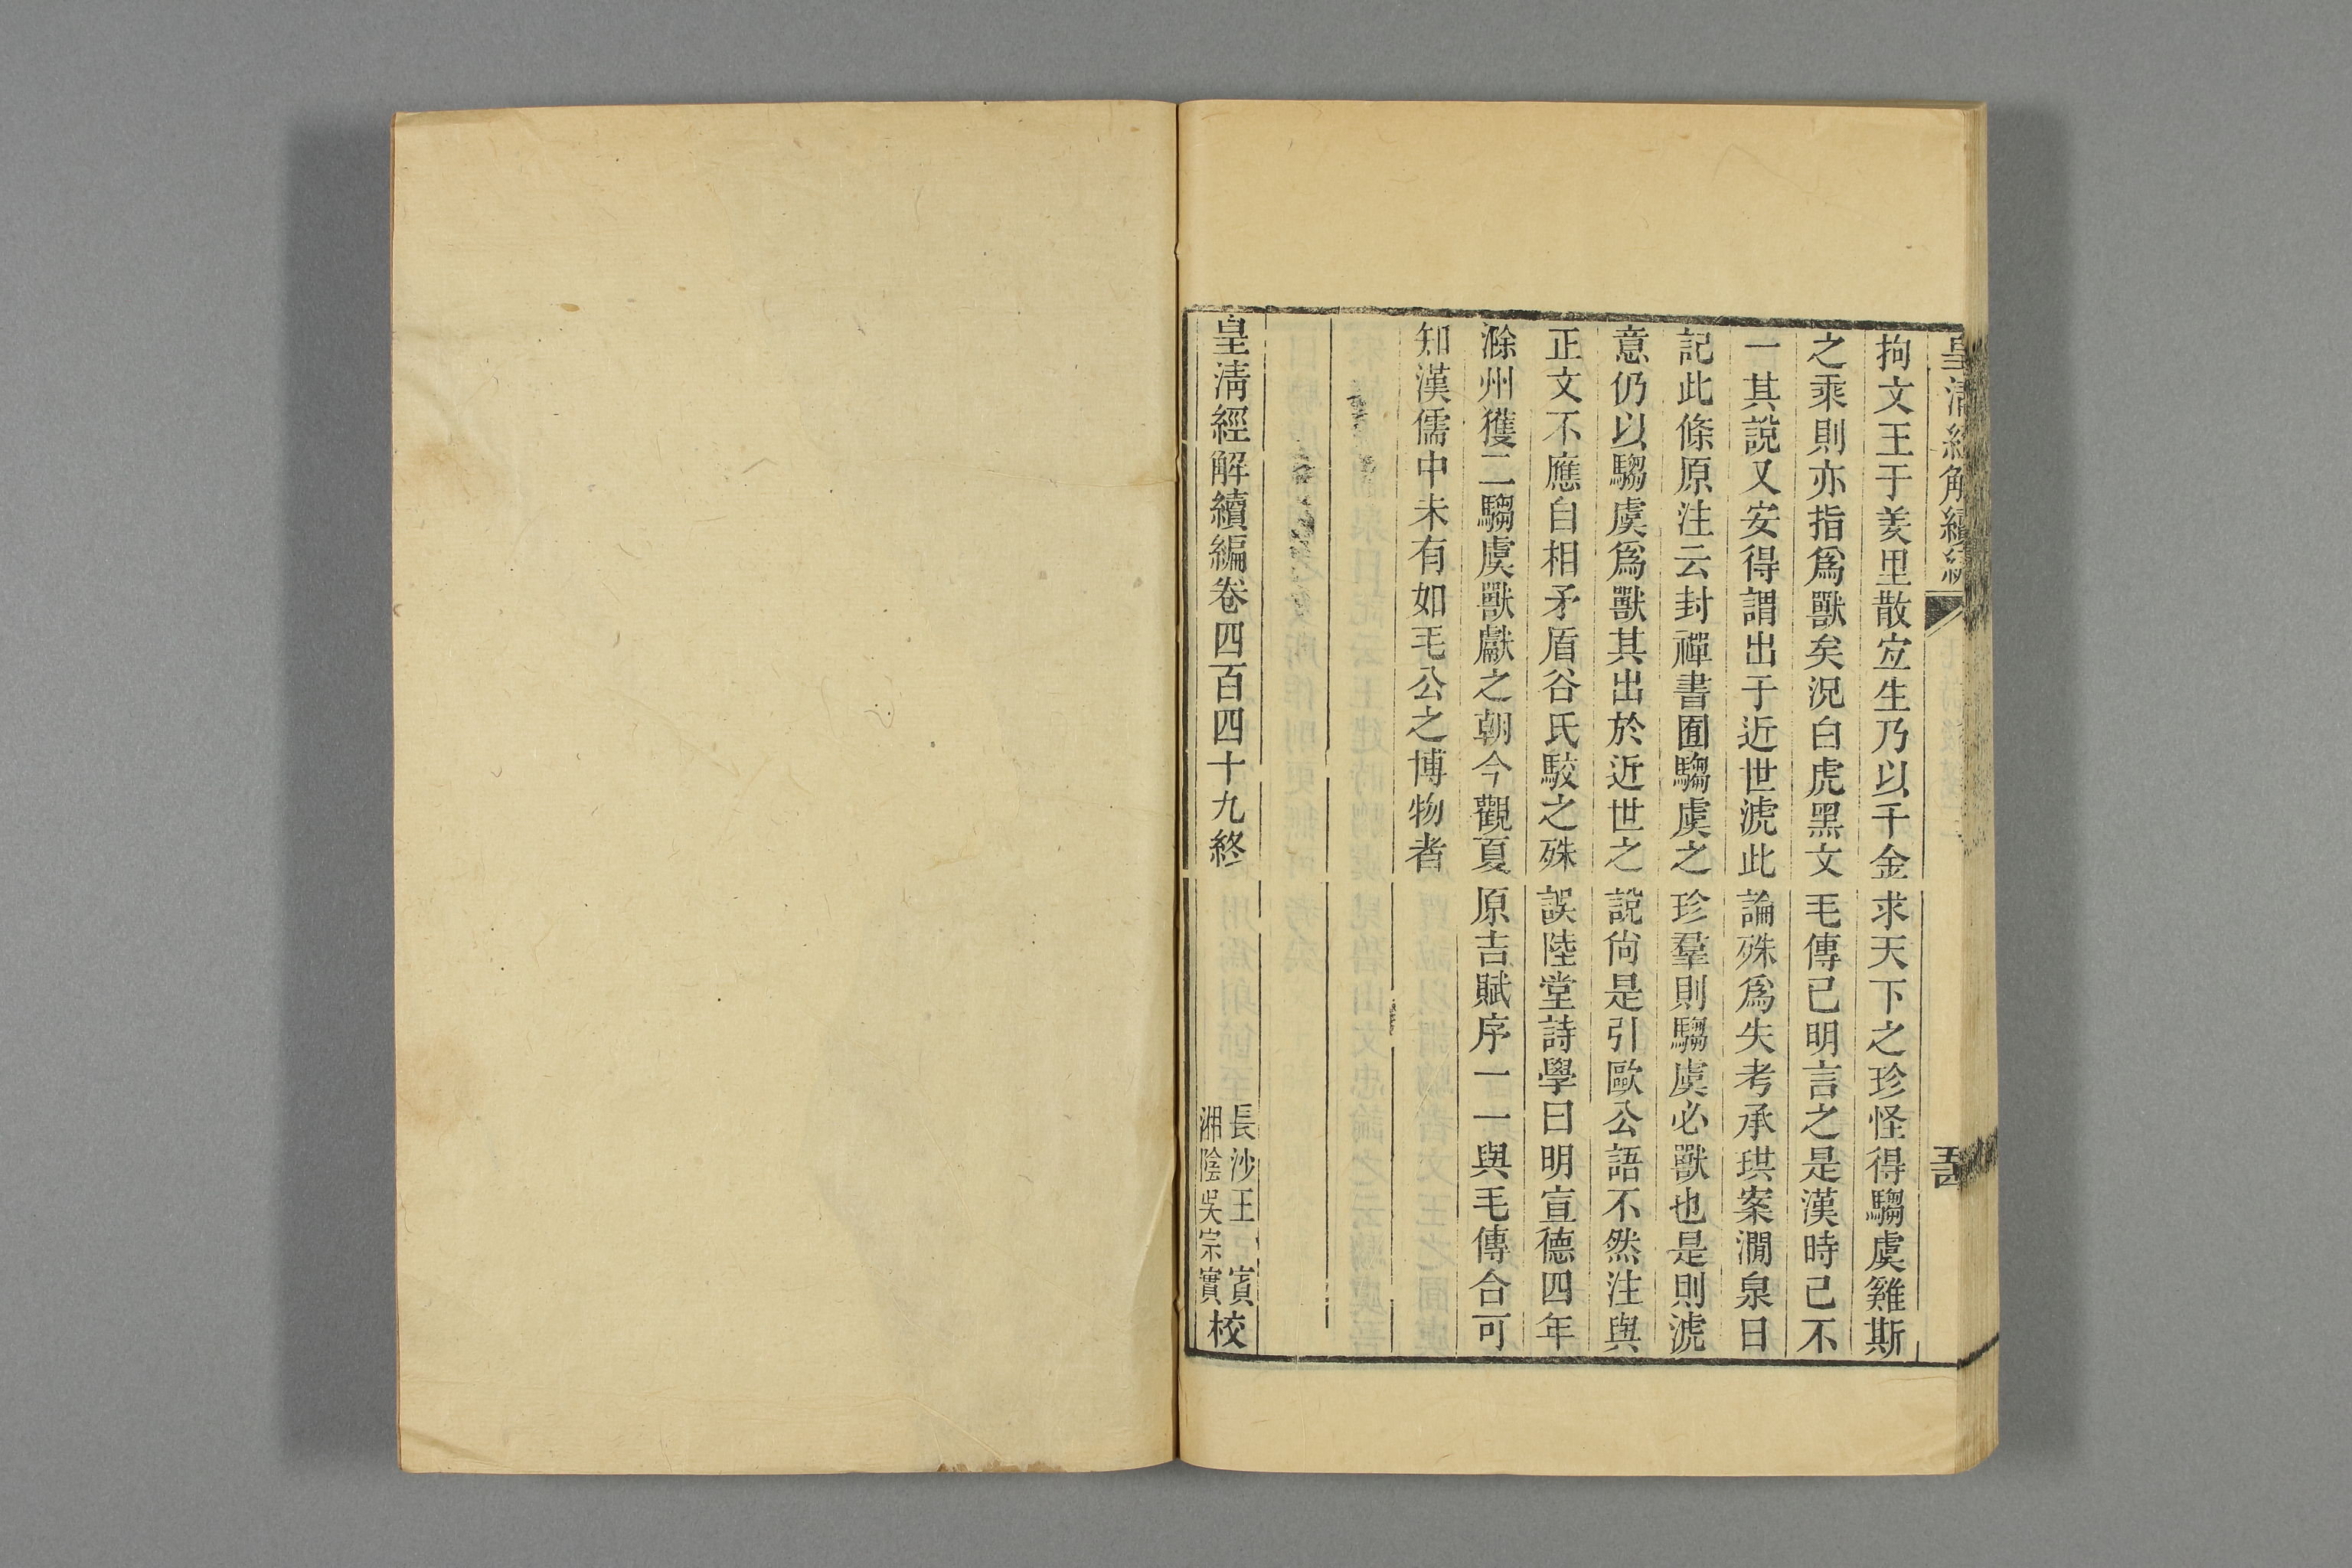 皇清經解續編
拘文王于羑里散宜生乃以千金求天下之珍怪得騶虞雞斯
之乘則亦指爲獸矣況白虎黑文毛傳已明言之是漢時已不
一其說又安得謂出于近世淲此論殊爲失考承珙案澗泉日
記此條原注云封禪書囿騶虞之珍羣則騶虞必獸也是則淲
意仍以騶虞爲獸其出於近世之說尙是引歐公語不然注與
正文不應自相矛盾谷氏駮之殊誤陸堂詩學曰明宣德四年
滁州獲二騶虞獸獻之朝今觀夏原吉賦序一一與毛傳合可
知漢儒中未有如毛公之博物者
皇清經解續編卷四百四十九終
長沙王 賓
湘陰吳宗實
校